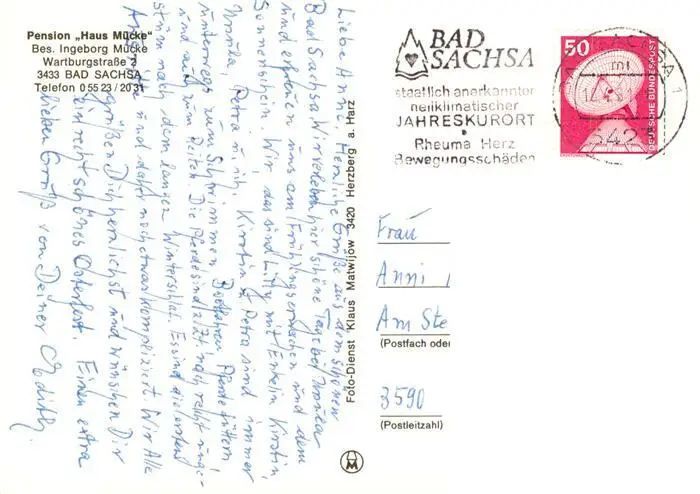 Pension „Haus Mücke"
Bes. Ingeborg Mücke
Wartburgstraße 2
3433 BAD SACHSA
Telefon 0 55 23 / 20 31
Liebe Anni! Herzliche Grüße aus dem schönen
Bad Sachsa. Wir verleben hier schöne Tage bei
und erfreuen uns am Frühlingserwachen und dem
Sonnenschein. Wir, das sind Lilly mit Enkelin Kirstin,
Petra u. ich. Kirstin u. Petra sind immer
unterwegs zum Schwimmen Pferde füttern
und auch zum Reiten. Die Pferde sind z. Zt. noch recht unge-
stüm nach dem langen Winterschlaf. Es sind die ersten
und daher noch etwas kompliziert. Wir Alle
grüßen Dich herzlichst und wünschen Dir
ein recht schönes Osterfest. Einen extra
lieben Gruß von Deiner Edith.
Foto-Dienst Klaus Matwijow 3420 Herzberg a. Harz
M
BAD
SACHSA
staatlich anerkannter
heilklimatischer
JAHRESKURORT
Rheuma Herz
Bewegungsschäden
SACHSA 1
ml
3423
50
DEUTSCHE BUNDESPOST
Frau
Anni
Am Ste
(Postfach oder
3590
(Postleitzahl)